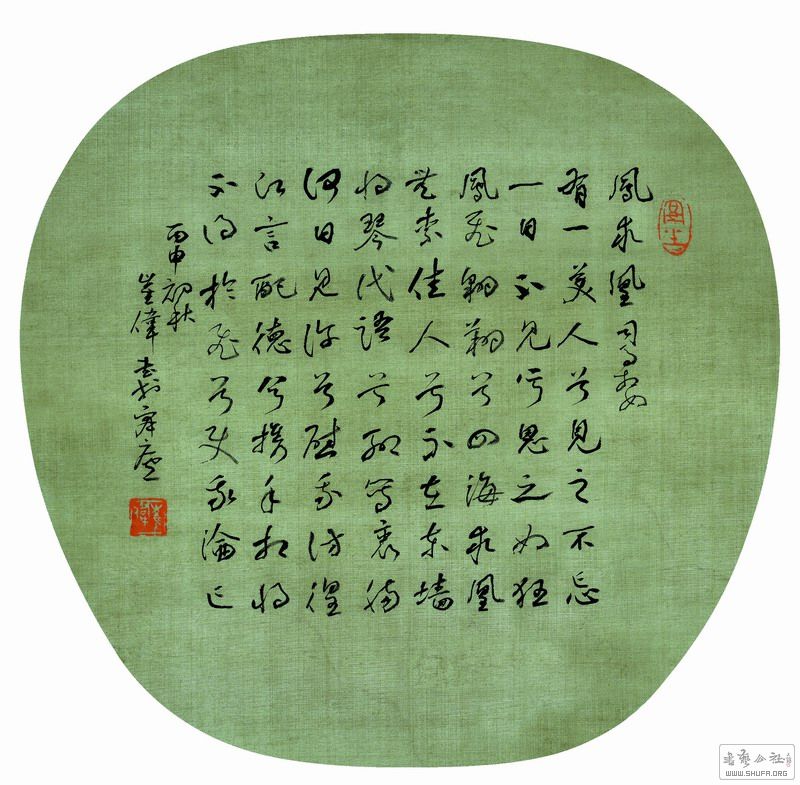 鳳求凰 司馬相如
有一美人兮見之不忘
一日不見兮思之如狂
鳳飛翱翔兮四海求凰
無奈佳人兮不在東墻
將琴代語兮聊寫衷腸
何日見許兮慰我彷徨
願言配德兮攜手相將
不得於飛兮使我淪亡
丙申初秋
崔偉書於廬
書藝公社
WWW.SHUFA.ORG